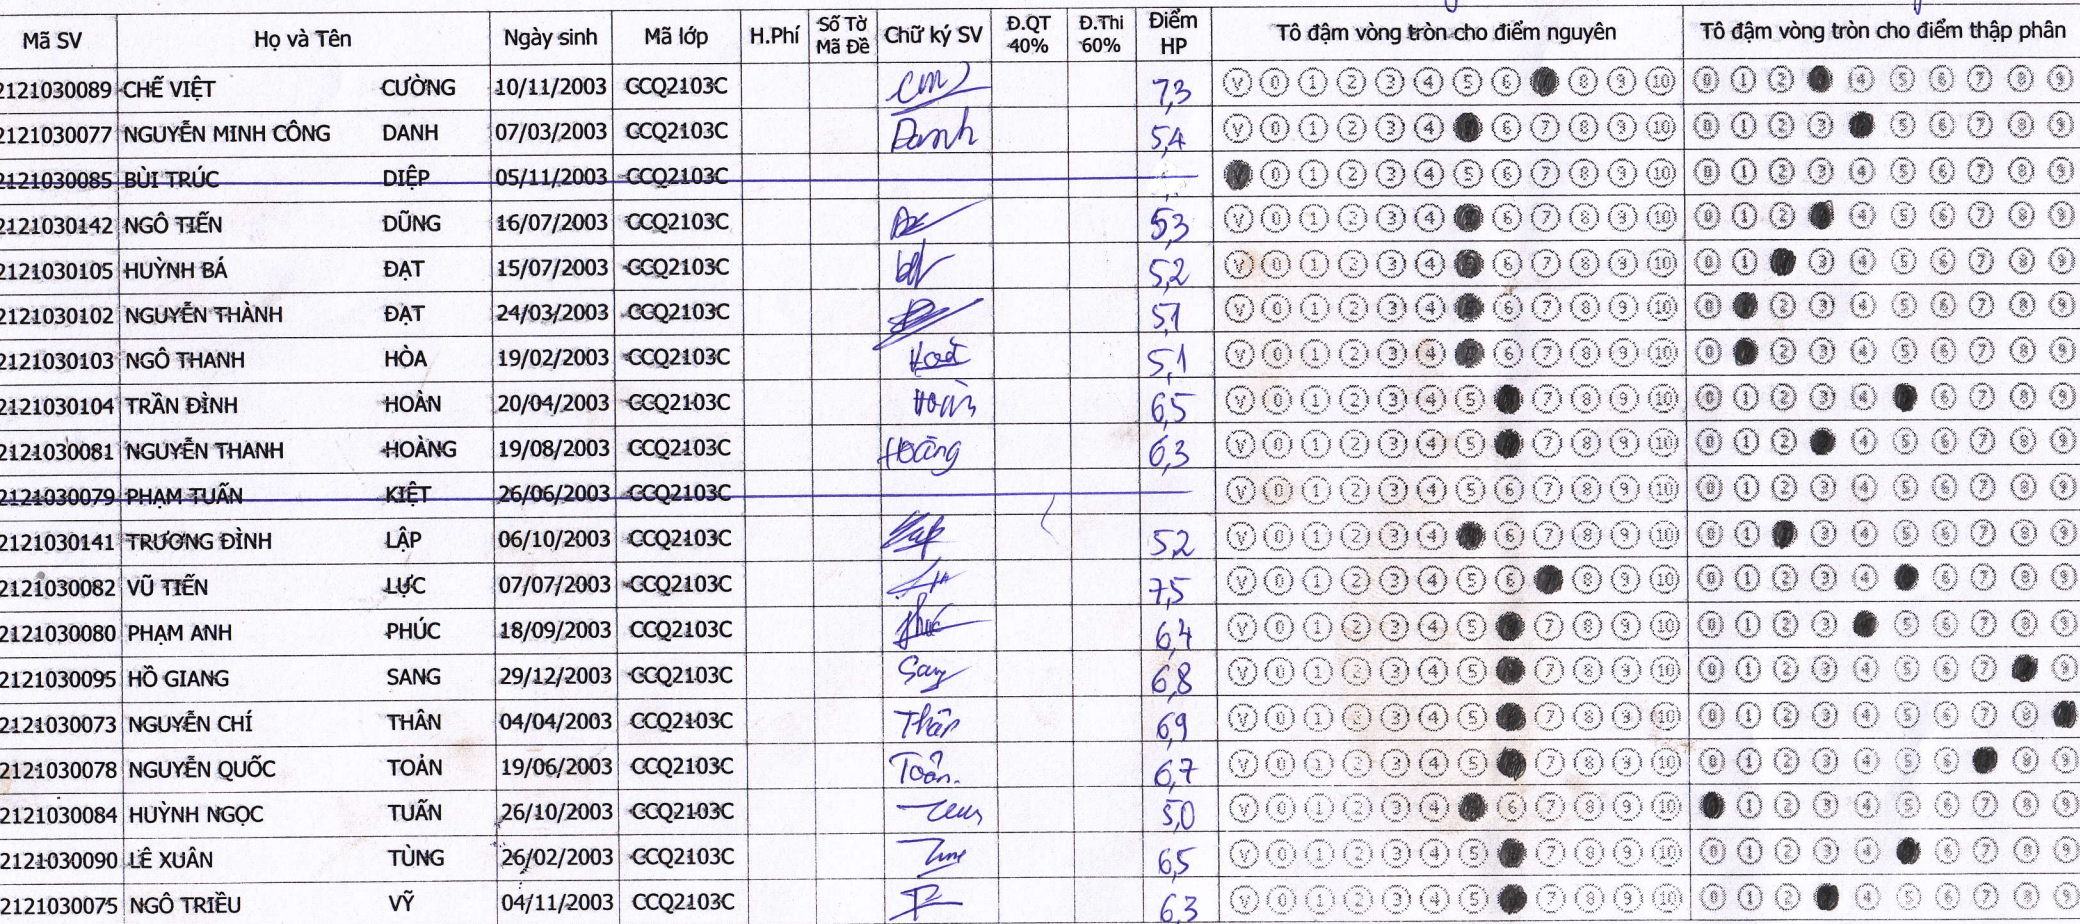 Mã SV Họ và Tên Ngày sinh Mã lớp H.Phí Số Tờ Mã Đề Chữ ký SV Đ.QT 40% Đ.Thi 60% Điểm HP Tô đậm vòng tròn cho điểm nguyên Tô đậm vòng tròn cho điểm thập phân
2121030089 CHẾ VIỆT CƯỜNG 10/11/2003 CCQ2103C 7,3 V 0 1 2 3 4 5 6 8 9 10 0 1 2 4 5 6 7 8 9
2121030077 NGUYỄN MINH CÔNG DANH 07/03/2003 CCQ2103C Danh 5,4 V 0 1 2 3 4 6 7 8 9 10 0 1 2 3 5 6 7 8 9
2121030085 BÙI TRÚC DIỆP 05/11/2003 CCQ2103C 0 1 2 3 4 5 6 7 8 9 10 0 1 2 3 4 5 6 7 8 9
2121030142 NGÔ TIẾN DŨNG 16/07/2003 CCQ2103C 5,3 V 0 1 2 3 4 6 7 8 9 10 0 1 2 4 5 6 7 8 9
2121030105 HUỲNH BÁ ĐẠT 15/07/2003 CCQ2103C 5,2 V 0 1 2 3 4 6 7 8 9 10 0 1 3 4 5 6 7 8 9
2121030102 NGUYỄN THÀNH ĐẠT 24/03/2003 CCQ2103C 5,1 V 0 1 2 3 4 6 7 8 9 10 0 2 3 4 5 6 7 8 9
2121030103 NGÔ THANH HÒA 19/02/2003 CCQ2103C 5,1 V 0 1 2 3 4 6 7 8 9 10 0 2 3 4 5 6 7 8 9
2121030104 TRẦN ĐÌNH HOÀN 20/04/2003 CCQ2103C 6,5 V 0 1 2 3 4 5 7 8 9 10 0 1 2 3 4 6 7 8 9
2121030081 NGUYỄN THANH HOÀNG 19/08/2003 CCQ2103C Hoàng 6,3 V 0 1 2 3 4 5 7 8 9 10 0 1 2 4 5 6 7 8 9
2121030079 PHẠM TUẤN KIỆT 26/06/2003 CCQ2103C V 0 1 2 3 4 5 6 7 8 9 10 0 1 2 3 4 5 6 7 8 9
2121030141 TRƯƠNG ĐÌNH LẬP 06/10/2003 CCQ2103C 5,2 V 0 1 2 3 4 6 7 8 9 10 0 1 3 4 5 6 7 8 9
2121030082 VŨ TIẾN LỰC 07/07/2003 CCQ2103C 7,5 V 0 1 2 3 4 5 6 8 9 10 0 1 2 3 4 6 7 8 9
2121030080 PHẠM ANH PHÚC 18/09/2003 CCQ2103C Phúc 6,4 V 0 1 2 3 4 5 7 8 9 10 0 1 2 3 5 6 7 8 9
2121030095 HỒ GIANG SANG 29/12/2003 CCQ2103C Sang 6,8 V 0 1 2 3 4 5 7 8 9 10 0 1 2 3 4 5 6 7 9
2121030073 NGUYỄN CHÍ THÂN 04/04/2003 CCQ2103C Thân 6,9 V 0 1 2 3 4 5 7 8 9 10 0 1 2 3 4 5 6 7 8
2121030078 NGUYỄN QUỐC TOẢN 19/06/2003 CCQ2103C Toản. 6,7 V 0 1 2 3 4 5 7 8 9 10 0 1 2 3 4 5 6 8 9
2121030084 HUỲNH NGỌC TUẤN 26/10/2003 CCQ2103C 5,0 V 0 1 2 3 4 6 7 8 9 10 1 2 3 4 5 6 7 8 9
2121030090 LÊ XUÂN TÙNG 26/02/2003 CCQ2103C 6,5 V 0 1 2 3 4 5 7 8 9 10 0 1 2 3 4 6 7 8 9
2121030075 NGÔ TRIỀU VỸ 04/11/2003 CCQ2103C 6,3 V 0 1 2 3 4 5 7 8 9 10 0 1 2 4 5 6 7 8 9